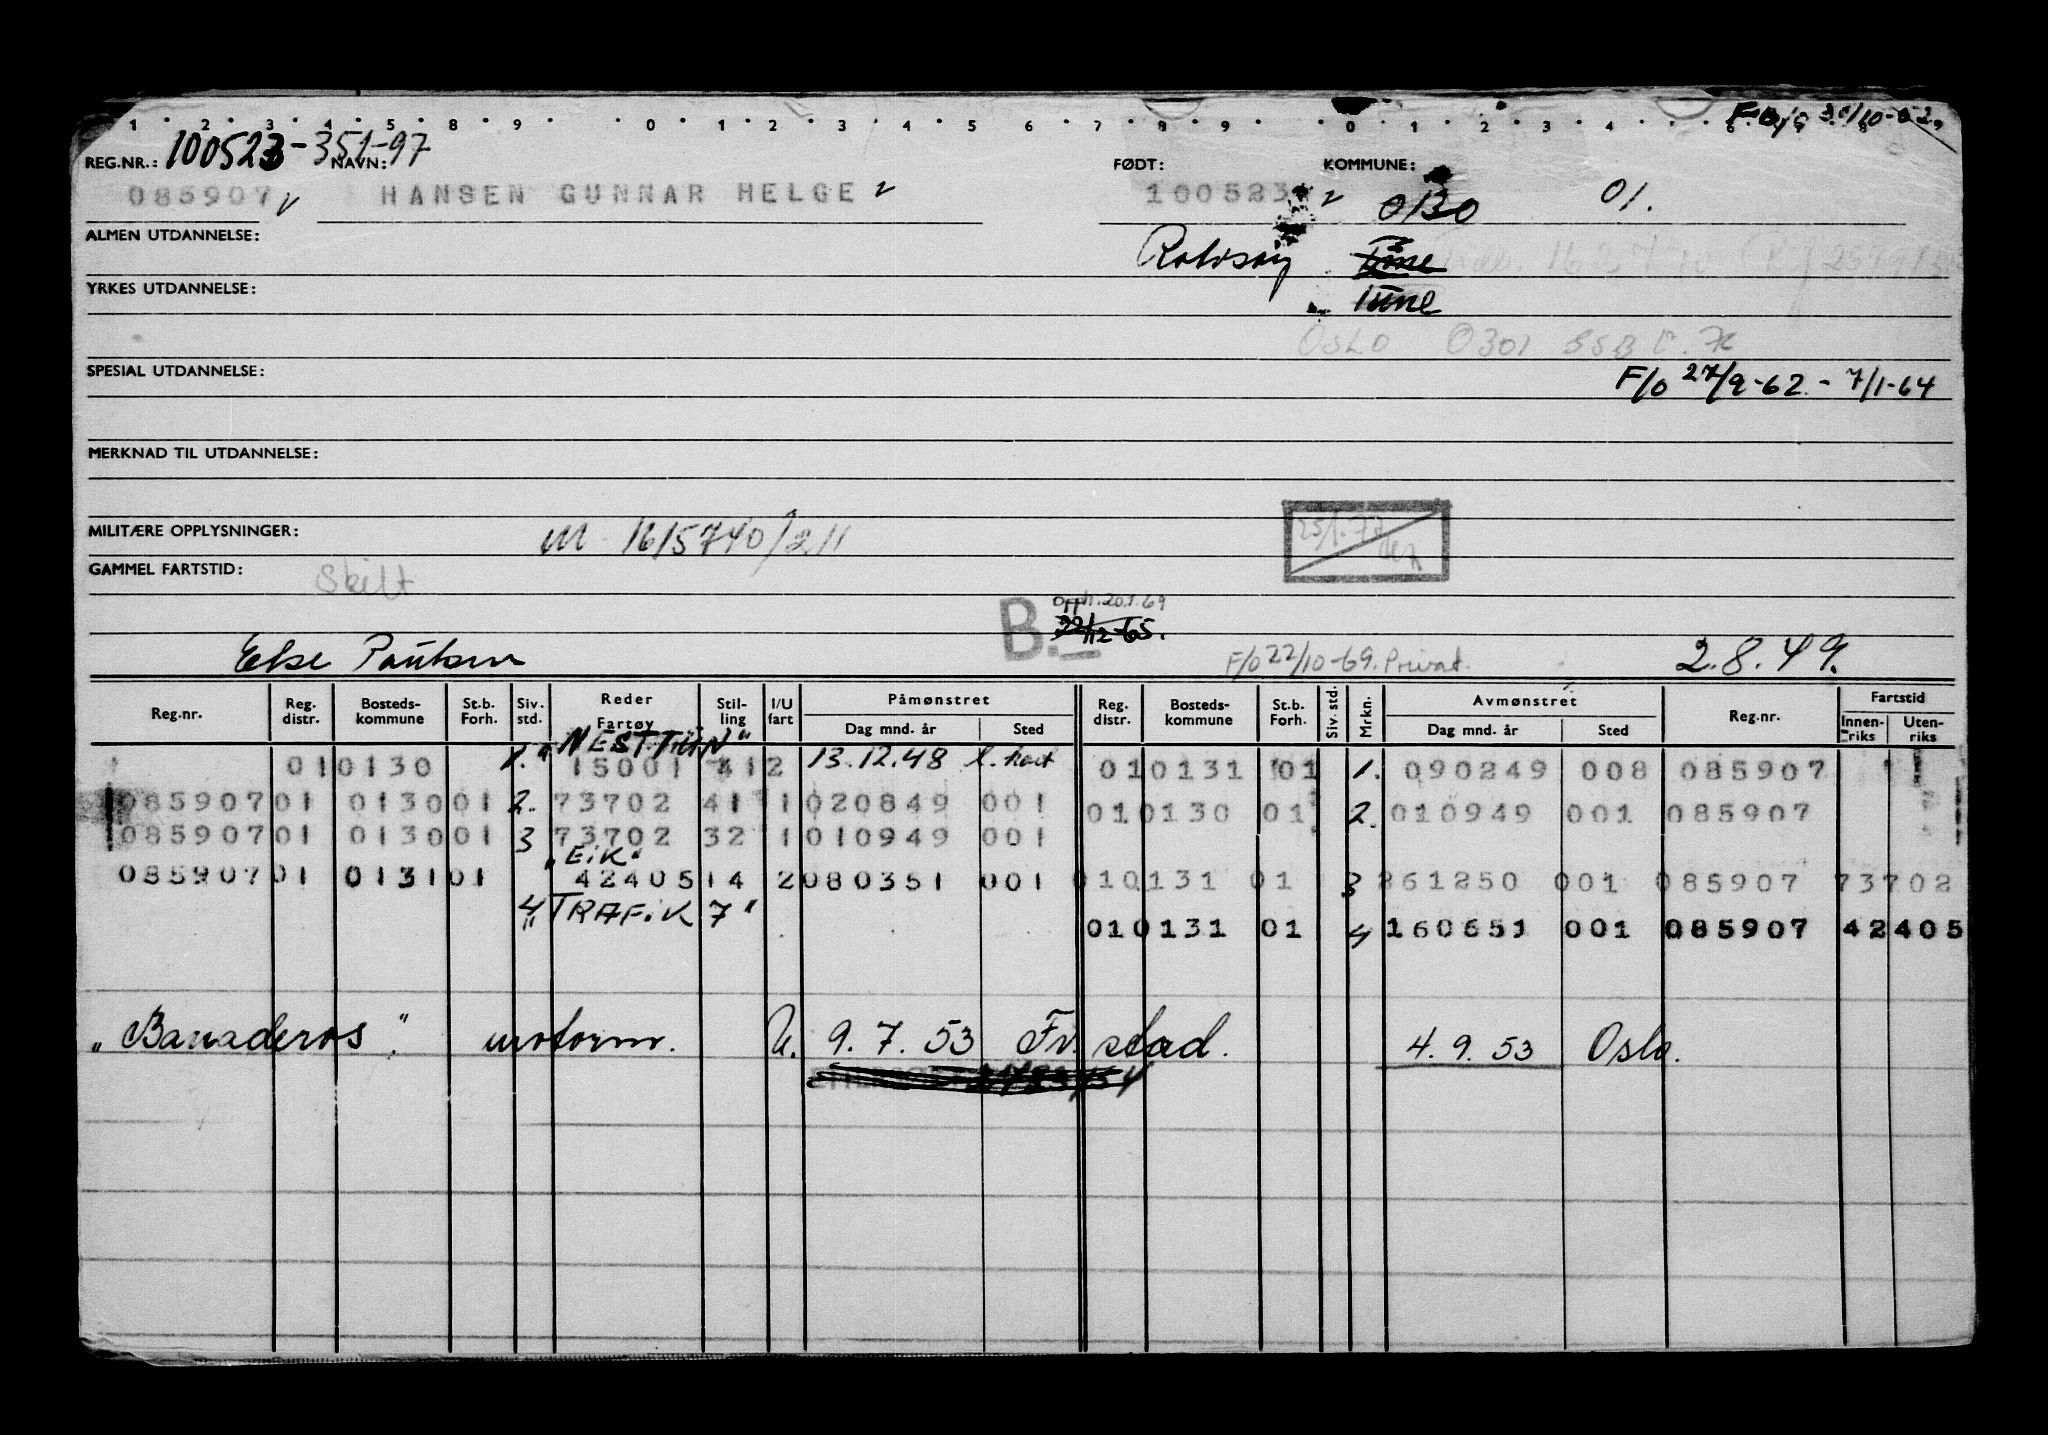 1 2 3 4 5 8 9 0 1 2 3 4 5 7 8 9 0 1 2 3 4
REG.NR.: 100523-351-97 NAVN: FØDT: KOMMUNE:
085907 HANSEN GUNNAR HELGE 100523 01.
ALMEN UTDANNELSE: Rolvsøy
YRKES UTDANNELSE: Tune
OSLO 0301
SPESIAL UTDANNELSE: F/o 27/9-62 - 7/1-64
MERKNAD TIL UTDANNELSE:
MILITÆRE OPPLYSNINGER: M 1615740/211
GAMMEL FARTSTID: Skilt
B. Opph. 20.1.69
22/12-65.
Else Paulsen F/o 22/10-69. Privat. 2.8.49.
Reg.nr. Reg. distr. Bosteds-kommune St.b. Forh. Siv. std. Reder Fartøy Stil-ling I/U fart Påmønstret Dag mnd. år Sted Reg. distr. Bosteds-kommune St.b. Forh. Siv. std. Mrkn. Avmønstret Dag mnd. år Sted Reg.nr. Fartstid Innen-riks Uten-riks
"NESTTUN"
01 0130 1. 15001 41 2 13.12.48 01 0131 01 1. 090249 008 085907
085907 01 0130 01 2. 73702 41 1 020849 001 01 0130 01 2. 010949 001 085907
085907 01 0130 01 3 73702 32 1 010949 001
"EIK"
085907 01 0131 01 42405 14 2 080351 001 010131 01 3 261250 001 085907 73702
4 "TRAFIK 7" 010131 01 4 160651 001 085907 42405
"Banaderos". motorm. U. 9.7.53 Fr.stad. 4.9.53 Oslo.